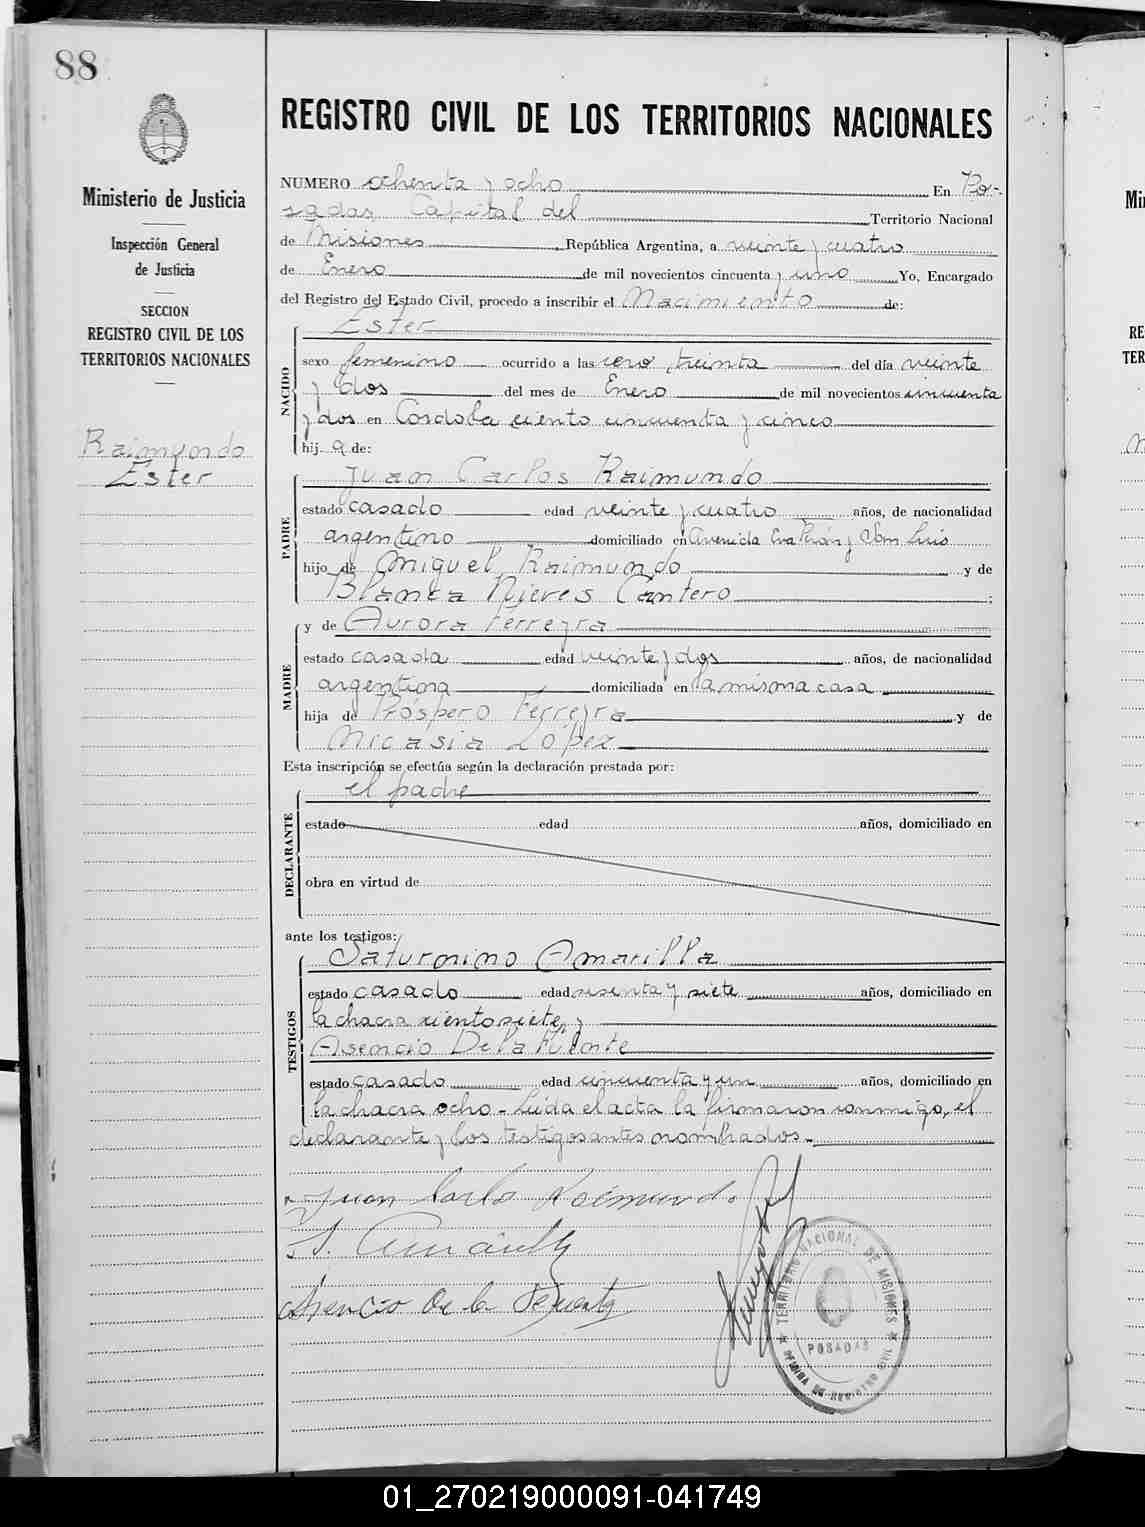 88
REGISTRO CIVIL DE LOS TERRITORIOS NACIONALES
Ministerio de Justicia
Inspección General
de Justicia
SECCION
REGISTRO CIVIL DE LOS
TERRITORIOS NACIONALES
Raimundo
Ester
NUMERO ochenta y ocho En Po-
sadas, Capital del Territorio Nacional
de Misiones, República Argentina, a veinte y cuatro
de Enero de mil novecientos cincuenta y uno Yo, Encargado
del Registro del Estado Civil, procedo a inscribir el Nacimiento de:
NACIDO
Ester
sexo femenino ocurrido a las cero treinta del día veinte
y dos del mes de Enero de mil novecientos cincuenta
y dos en Córdoba ciento cincuenta y cinco
hij a de:
PADRE
Juan Carlos Raimundo
estado casado edad veinte y cuatro años, de nacionalidad
argentino domiciliado en Avenida Eva Perón y San Luis
hijo de Miguel Raimundo y de
Blanca Nieves Cantero ;
MADRE
y de Aurora Ferreyra
estado casada edad veinte y dos años, de nacionalidad
argentina domiciliada en la misma casa
hija de Próspero Ferreyra y de
Nicasia López
Esta inscripción se efectúa según la declaración prestada por:
el padre
DECLARANTE
estado edad años, domiciliado en
obra en virtud de
ante los testigos:
TESTIGOS
Saturnino Amarilla
estado casado edad sesenta y siete años, domiciliado en
la chacra ciento siete, y
Asencio De la Fuente
estado casado edad cincuenta y un años, domiciliado en
la chacra ocho - Leída el acta la firmaron conmigo, el
declarante y los testigos antes nombrados.-
Juan Carlos Raimundo
S. Amarilla
Asencio de la Fuente
TERRITORIO NACIONAL DE MISIONES
POSADAS
OFICINA DE REGISTRO CIVIL
Mi
RE
TER
01_270219000091-041749